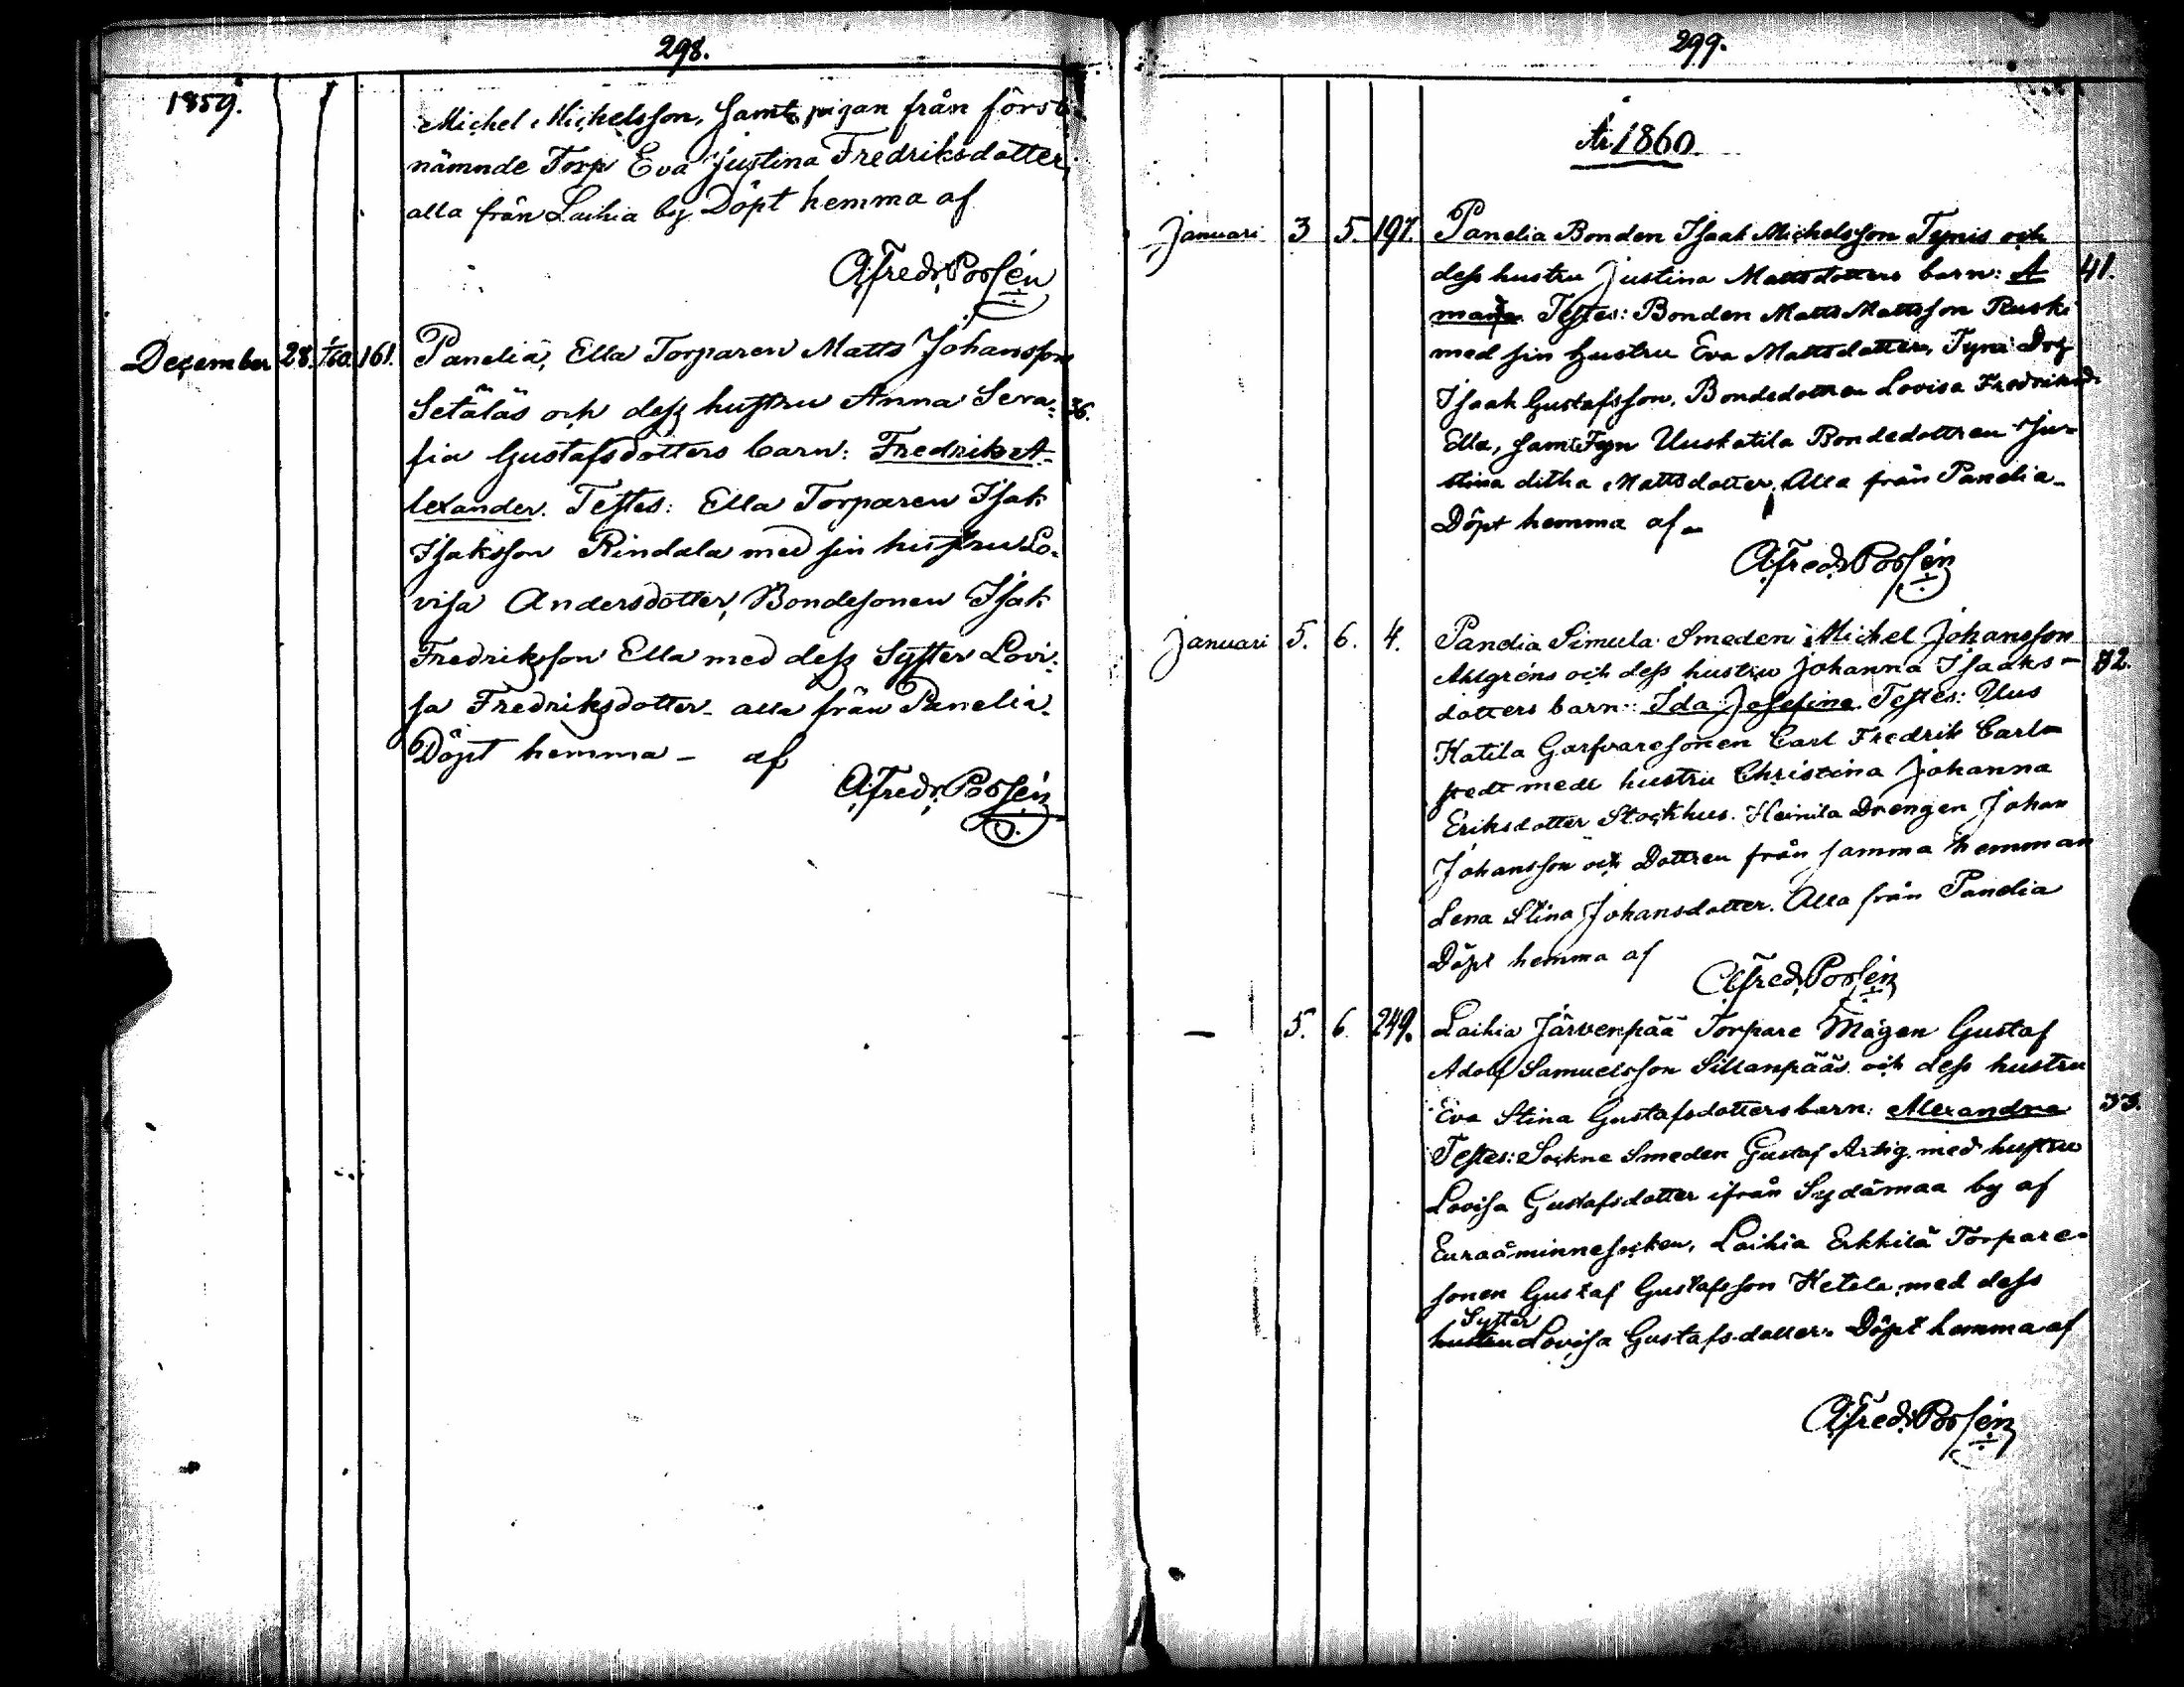 298.
1859.
Michel Michelsson, samt pigan från först
nämnde Torp Eva Justina Fredriksdotter,
alla från Laihia by Döpt hemma af
Alfredr. Porsén
December 28. 1/60. 161. Panelia, Ella Torparen Matts Johansson
Setäläs och dess hustru Anna Sera= 36.
fia Gustafsdotters barn: Fredrik A=
lexander. Testes: Ella Torparen Isak
Isaksson Rindala med sin hustru Lo=
visa Andersdotter, Bondesonen Isak
Fredriksson Ella med dess Syster Lovi=
sa Fredriksdotter - alla från Panelia.
Döpt hemma - af
Alfredr. Porsén
299.
År 1860.
Januari 3 5. 197. Panelia Bonden Isaak Michelsson Tynis och
dess hustru Justina Mattsdotters barn: A 41.
manda. Testes: Bonden Matts Mattsson Ruski
med sin hustru Eva Mattsdotter, Tyni Drg
Isaak Gustafsson, Bondedottren Lovisa Fredriksd.
Ella, samt Uuskatila Bondedottren Ju=
stina ditha Mattsdotter, Alla från Panelia -
Döpt hemma af -
Alfredr. Porsén
Januari 5. 6. 4. Panelia Simula Smeden Michel Johansson
Ahlgréns och dess hustru Johanna Isaaks - 32.
dotters barn: Ida Josefina. Testes: Uus
Katila Garfvaresonen Carl Fredrik Carl=
stedt med hustru Christina Johanna
Eriksdotter Stockhus. Heinila Drengen Johan
Johansson och Dottren från samma hemman
Lena Stina Johansdotter. Alla från Panelia
Döpt hemma af
Alfredr. Porsén
— 5. 6. 249. Laihia Järvenpää Torpare Mågen Gustaf
Adolf Samuelsson Sillanpääs och dess hustru
Eva Stina Gustafsdotters barn: Alexandra 33.
Testes: Sockne Smeden Gustaf Artig med hustru
Lovisa Gustafsdotter ifrån Sydämaa by af
Euraåminne socken, Laihia Erkkilä Torpare=
sonen Gustaf Gustafsson Ketala med dess
Syster
hustru Lovisa Gustafsdotter. Döpt hemma af
Alfredr. Porsén